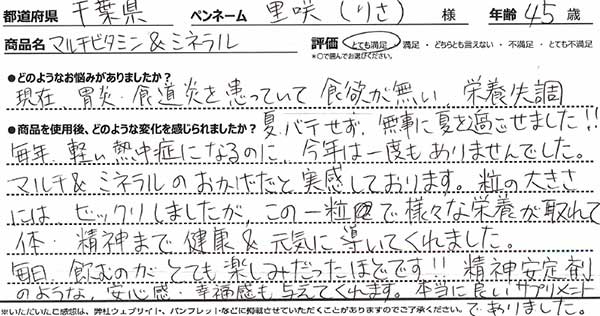 都道府県 千葉県 ペンネーム 里咲(りさ) 様 年齢 45 歳
商品名 マルチビタミン&ミネラル 評価 とても満足・満足・どちらとも言えない・不満足・とても不満足
*○で囲んでお選びください。
●どのようなお悩みがありましたか?
現在 胃炎・食道炎を患っていて 食欲が無い 栄養失調
●商品を使用後、どのような変化を感じられましたか? 夏バテせず、無事に夏を過ごせました!!
毎年、軽い熱中症になるのに、今年は一度もありませんでした。
マルチ&ミネラルのおかげだと実感しております。粒の大きさ
には ビックリしましたが、この一粒で様々な栄養が取れて
体・精神まで健康&元気に導いてくれました。
毎日、飲むのがとても楽しみだったほどです!! 精神安定剤
のような、安心感・幸福感も与えてくれます。本当に良いサプリメント
でありました。
*いただいたご感想は、弊社ウェブサイト、パンフレットなどに掲載させていただくことがありますのでご了承ください。